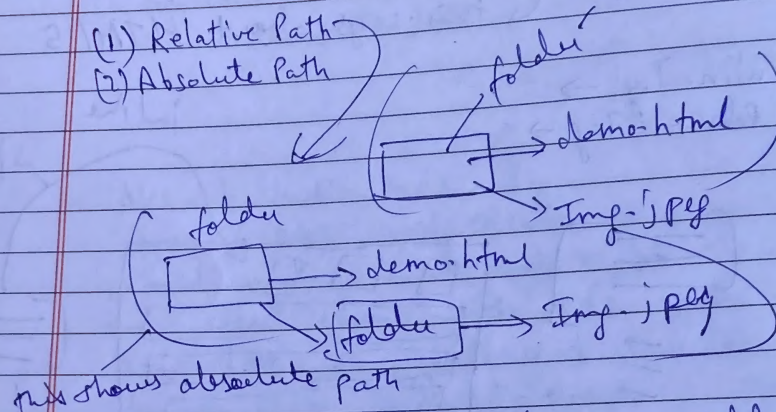 (1) Relative Path
(2) Absolute Path
folder
demo.html
Img.jpeg
folder
demo.html
folder
Img.jpeg
this shows absolute path